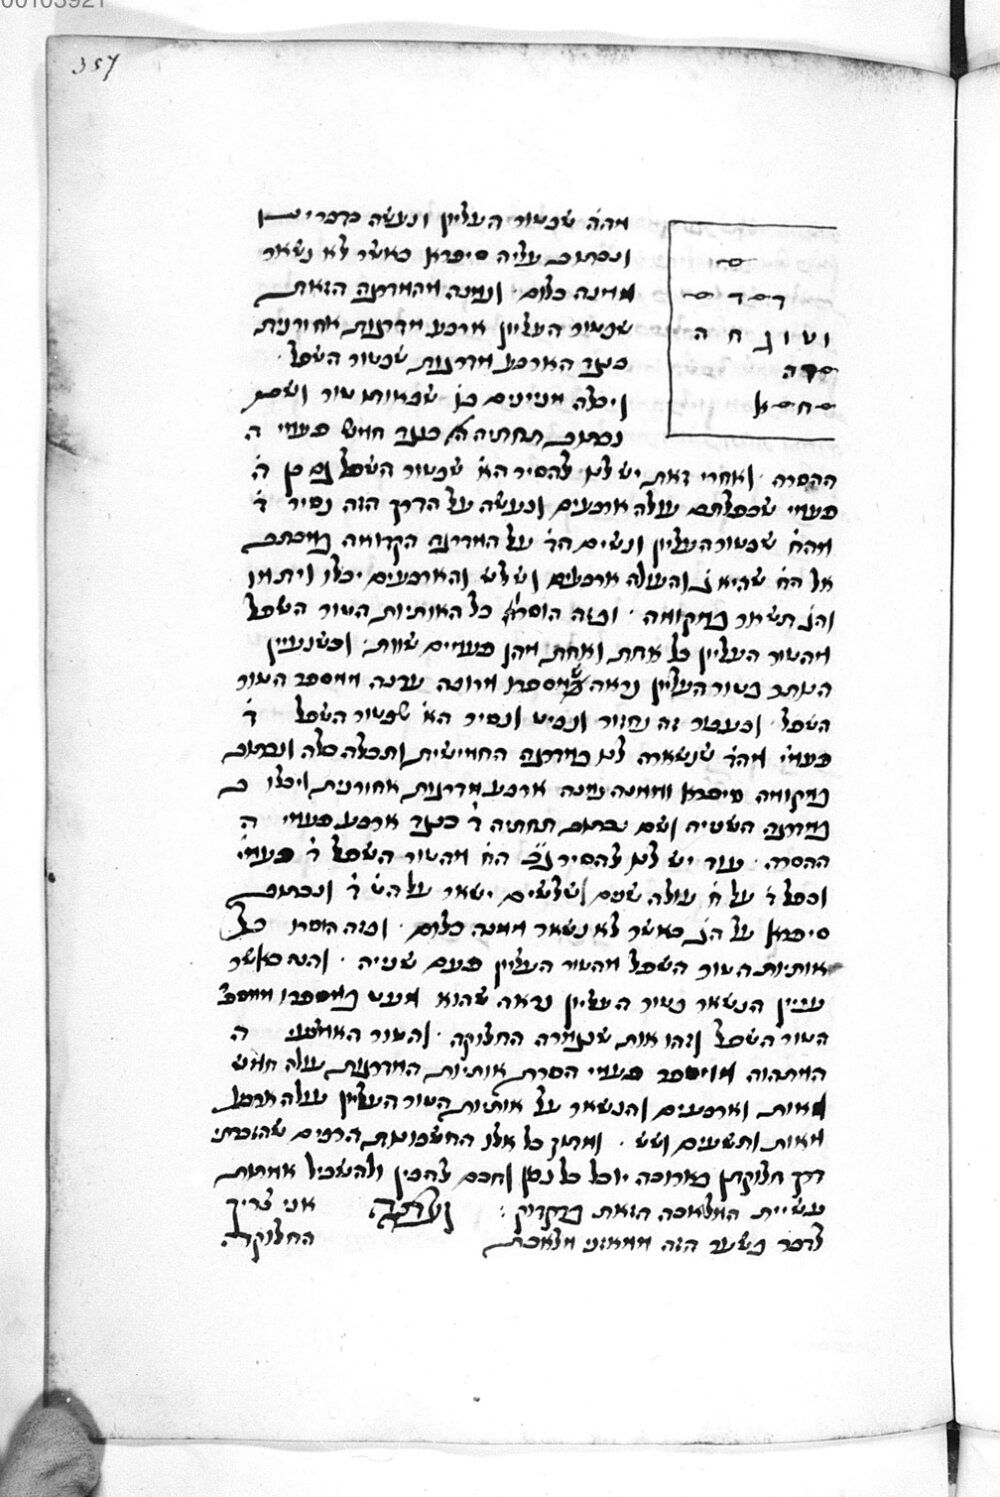 357
מהה׳ שבטור העליון ונעשה כדברינו
ונכתוב עליה סיפרא כאשר לא נשאר
ממנה כלום · ונמנה מהמדרגה הזאת
שבטור העליון ארבע מדרגות אחורנית
כנגד הארבע מדרגות שבטור השפל ·
ויכלה מניינים בו׳ שבאותו טור ושם
נכתוב תחתיה א׳ כנגד חמש פעמי ה
ההסרה · ואחרי זאת יש לנו להסיר הא׳ שבטור השפל גם כן ה׳
פעמי שכפלתם עולה ארבעים ונעשה על הדרך הזה נסיר ד׳
מהח׳ שבטור העליון ונשים הד׳ על המדרגה הקדומה במכתב
אל הח׳ שהיא ג׳ והעולה ארבעים ושלש והארבעים יכלו ויתמו
והג׳ תשאר במקומה · ובזה הוסרו כל האותיות הטור השפל
מהטור העליון כל אחת ואחת מהן פעמיים שוות · וכשנעיין
הנותר בטור העליון נראה שמספרו מרובה ערכה ממספר הטור
השפל · ובעבור זה נחזור ונביט ונסיר הא׳ שבטור השפל ד׳
פעמי׳ מהד׳ שנשארה לנו במדרגה החמישית ותכלה כלה ונכתוב
במקומה סיפרא וממנה נמנה ארבע מדרגות אחורנית ויכלו ב
במדרגה השנייה ושם נכתוב תחתיה ד׳ כנגד ארבע פעמי ה
ההסרה · עוד יש לנו להסיר ג״כ הח׳ מהטור השפל ד׳ פעמי׳
וכפל ד׳ על ח׳ עולה שנים ושלשים ישאר על הט׳ ד׳ ונכתוב
סיפרא על הג׳ כאשר לא נשאר ממנה כלום · ובזה הוסרו כל
אותיות הטור השפל מהטור העליון פעם שנייה · והנה כאשר
עניין הנשאר בטור העליון נראה שהוא מעט במספרו ממספ׳
הטור השפל וזהו אות שנגמרה החלוקה · והטור האמצעי ה
המתהוה ממספר פעמי הסרת אותיות המדרגות עולה חמש
מאות וארבעים והנשאר על אותיות הטור העליון עולה ארבע
מאות ותשעים ושש · ומתוך כל אלו החשבונות הרבים שהזכרתי
דרך חלוקתן בארוכה יוכל כל נבון וחכם להבין ולהשכיל אמתות
עשיית המלאכה הזאת בדקדוק : ועתה אני צריך
לדבר בשער הזה ממאזני מלאכת החלוקה